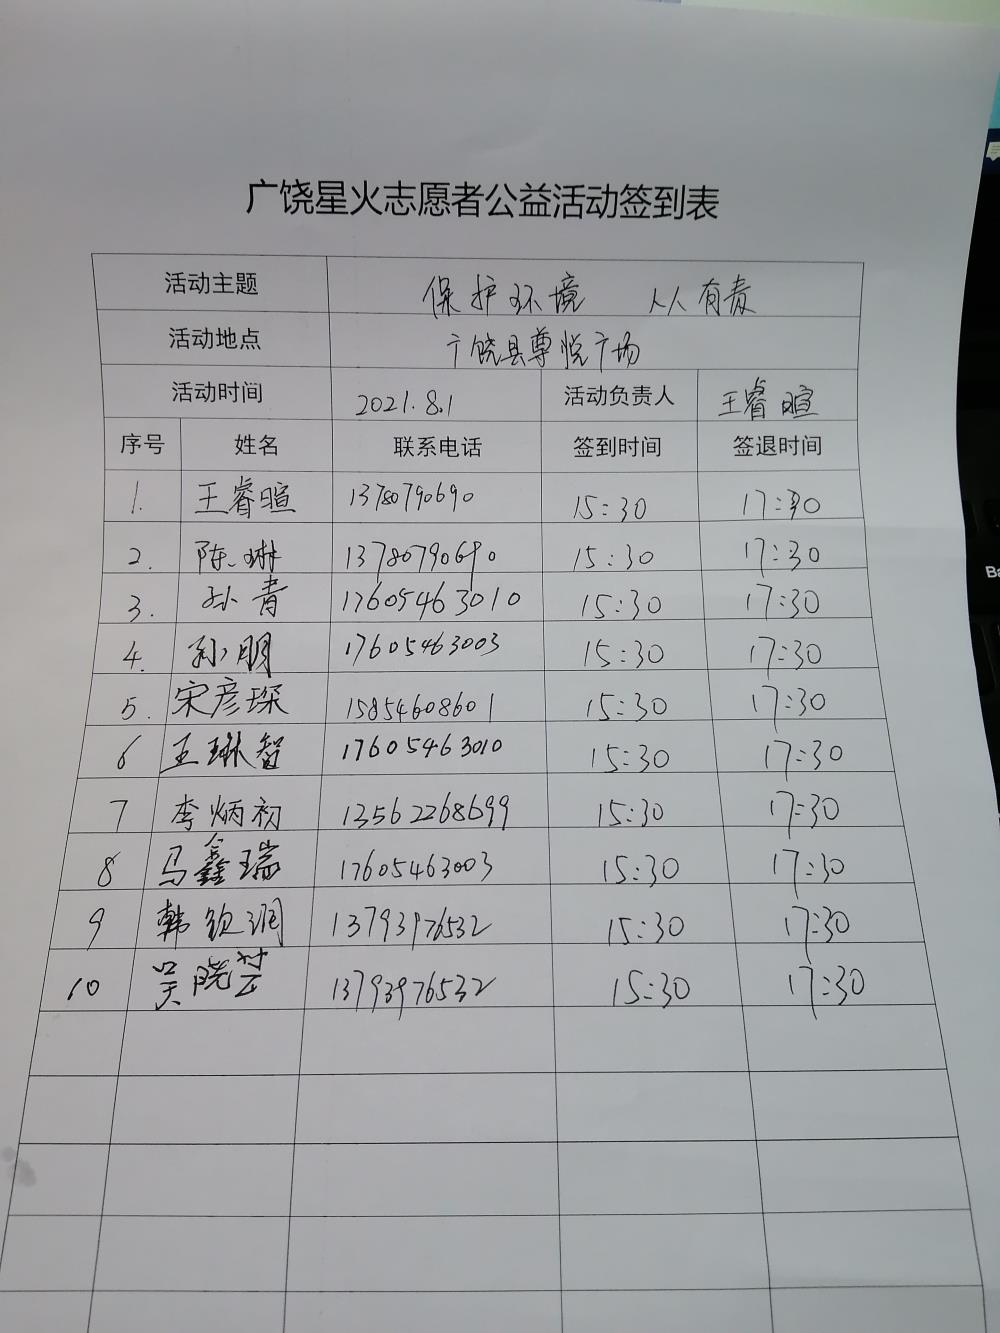 广饶星火志愿者公益活动签到表
活动主题 保护环境 人人有责
活动地点 广饶县尊悦广场
活动时间 2021.8.1 活动负责人 王睿暄
序号 姓名 联系电话 签到时间 签退时间
1. 王睿暄 13780790690 15:30 17:30
2. 陈琳 13780790690 15:30 17:30
3. 孙青 17605463010 15:30 17:30
4. 孙明 17605463003 15:30 17:30
5. 宋彦琛 15854608601 15:30 17:30
6 王琳智 17605463010 15:30 17:30
7 李炳初 13562268699 15:30 17:30
8 马鑫瑞 17605463003 15:30 17:30
9 韩钦润 13793976532 15:30 17:30
10 吴晓芸 13793976532 15:30 17:30
Ba